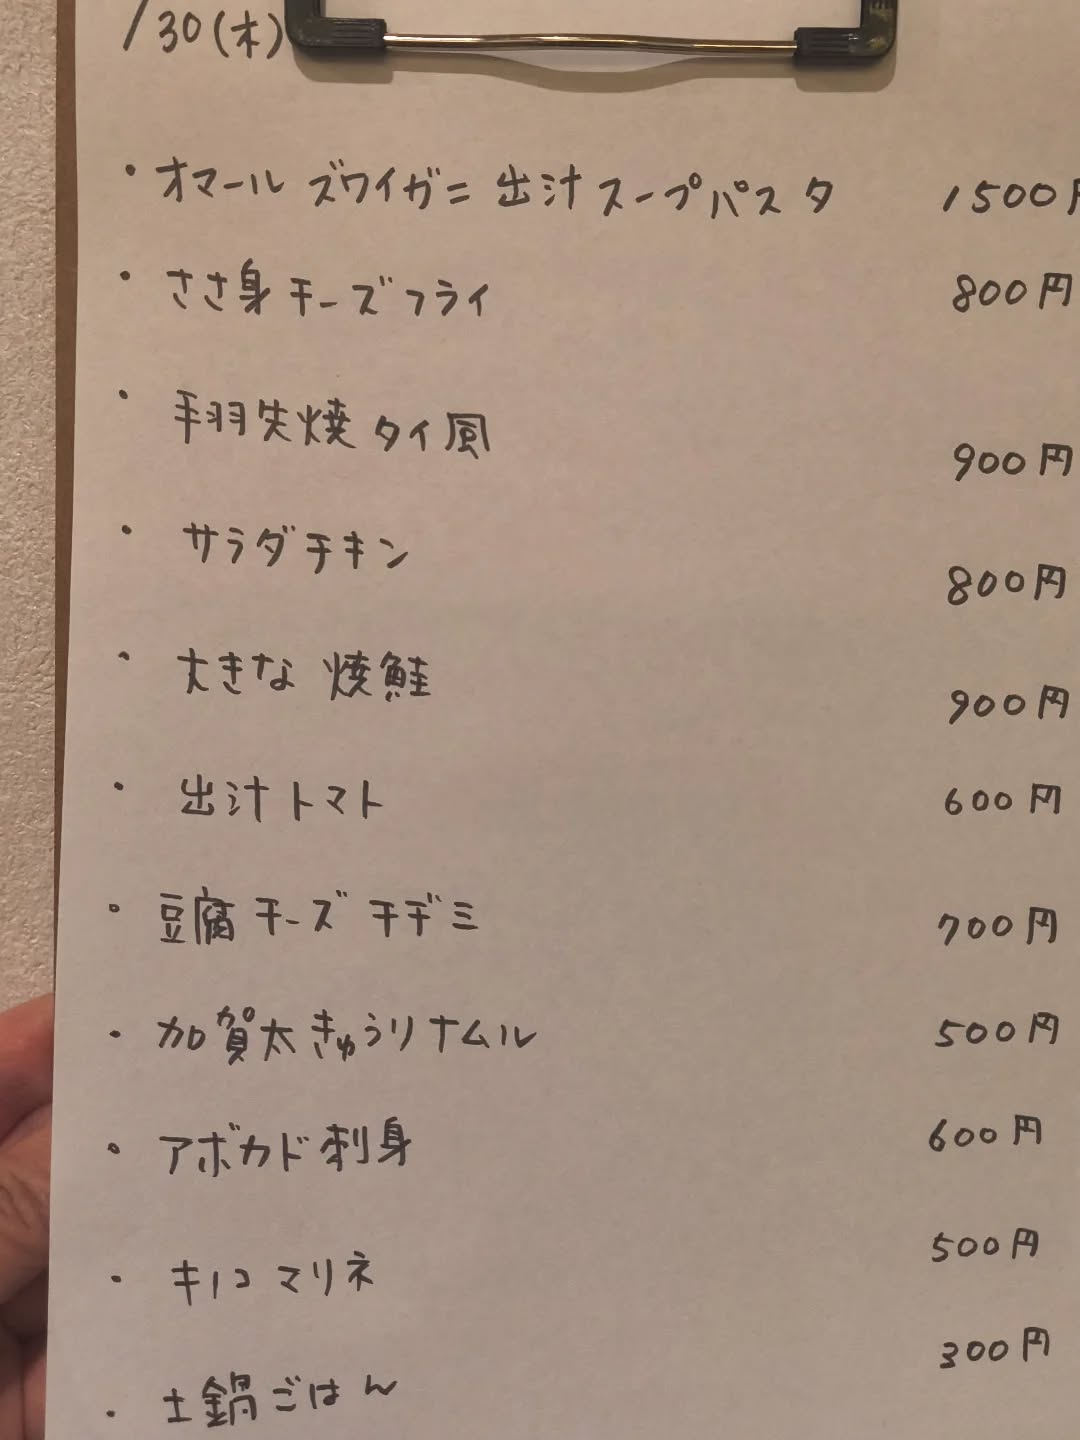 /30(木)
・オマール ズワイガニ 出汁スープパスタ 1500円
・ささ身チーズフライ 800円
・手羽先焼 タイ風 900円
・サラダチキン 800円
・大きな 焼鮭 900円
・出汁トマト 600円
・豆腐チーズチヂミ 700円
・加賀太きゅうりナムル 500円
・アボカド刺身 600円
・キノコマリネ 500円
・土鍋ごはん 300円